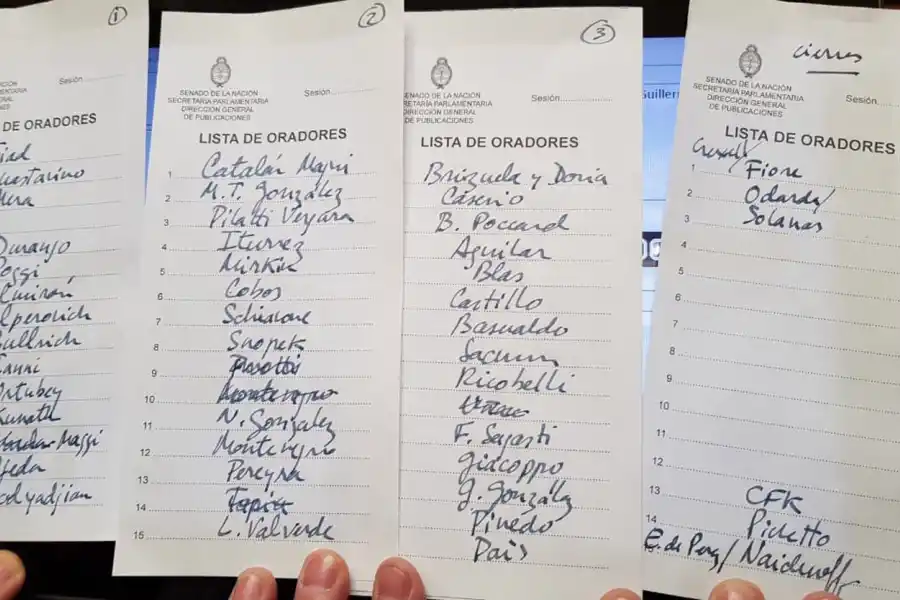 1
CIÓN
ENTARIA
RAL
NES
DE ORADORES
Durango
Poggi
Elmirón
Alperovich
Bullrich
Urtubey
Kunath
Maggi
Ojeda
2
SENADO DE LA NACIÓN
SECRETARIA PARLAMENTARIA
DIRECCIÓN GENERAL
DE PUBLICACIONES
Sesión
LISTA DE ORADORES
1 Catalán Magni
2 M.T. González
3 Pilatti Vergara
4 Iturrez
5 Mirkin
6 Cobos
7 Schiavone
8 Snopek
9
10 Montenegro
11 N. González
12 Montenegro
13 Pereyra
14 Tapia
15 L. Valverde
3
SENADO DE LA NACIÓN
RETARÍA PARLAMENTARIA
DIRECCIÓN GENERAL
DE PUBLICACIONES
Sesión
LISTA DE ORADORES
Brizuela y Doria
Caserio
B. Poccard
Aguilar
Blas
Castillo
Basualdo
Sacnun
Ricobelli
F. Sagasti
Giacoppo
G. González
Pinedo
Pais
Guillerm
cierres
SENADO DE LA NACIÓN
SECRETARIA PARLAMENTARIA
DIRECCIÓN GENERAL
DE PUBLICACIONES
Sesión
LISTA DE ORADORES
1 Fiore
2 Odarda/
3 Solanas
4
5
6
7
8
9
10
11
12
13 CFK
14 Pichetto
E. de Perez/Naidenoff